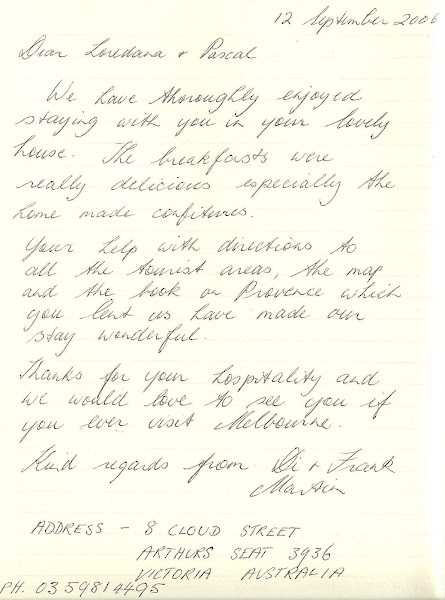 12 September 2006
Dear Loredana + Pascal
We have thoroughly enjoyed
staying with you in your lovely
house. The breakfasts were
really delicious especially the
home made confitures.
Your help with directions to
all the tourist areas, the map
and the book on Provence which
you lent us have made our
stay wonderful.
Thanks for your hospitality and
we would love to see you if
you ever visit Melbourne.
Kind regards from Di + Frank
Martin
ADDRESS - 8 CLOUD STREET
ARTHURS SEAT 3936
VICTORIA AUSTRALIA
PH. 0359814495